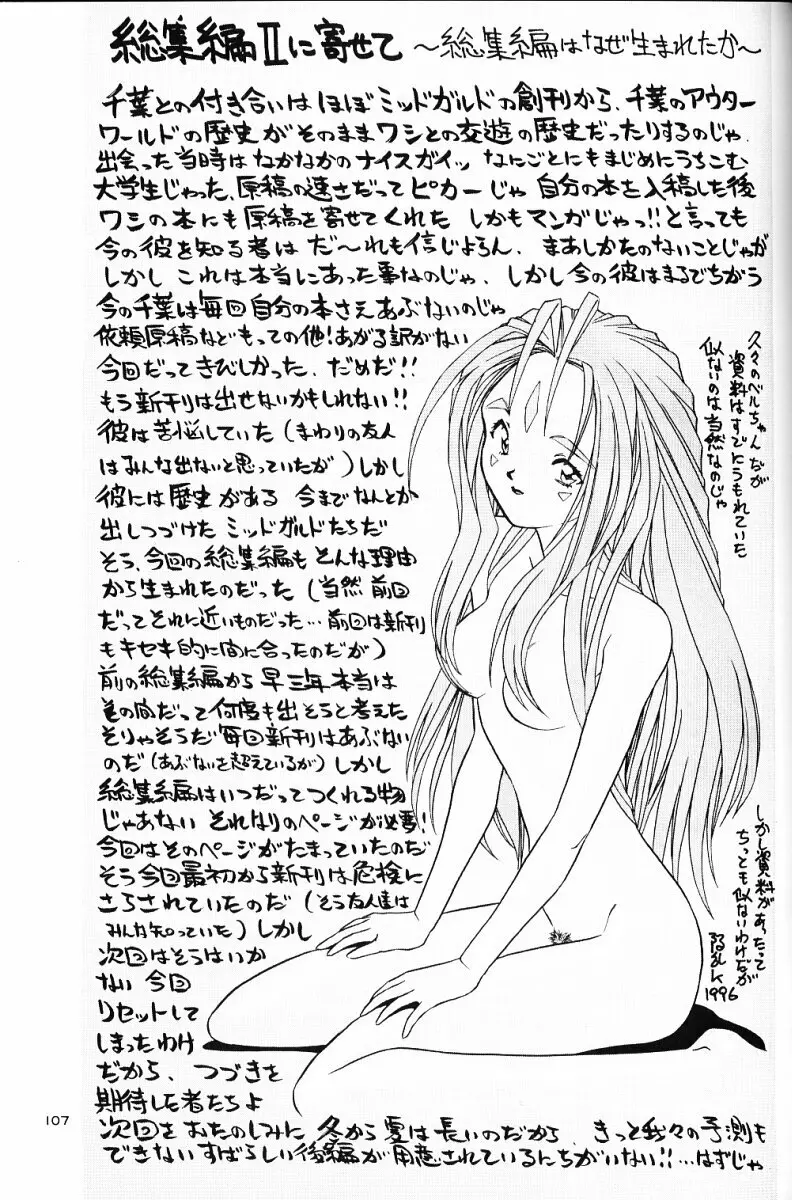 総集編Ⅱに寄せて 〜総集編はなぜ生まれたか〜
千葉との付き合いはほぼミッドガルドの創刊から、千葉のアウター
ワールドの歴史がそのままワシとの交遊の歴史だったりするのじゃ
出会った当時はなかなかのナイスガイッ なにごとにもまじめにうちこむ
大学生じゃった、原稿の速さだってピカーじゃ 自分の本を入稿した後
ワシの本にも原稿を寄せてくれた しかもマンガじゃっ!!と言っても
今の彼を知る者は だ〜れも信じよらん、まあしかたのないことじゃが
しかし これは本当にあった事なのじゃ、しかし今の彼はまるでちがう
今の千葉は毎回自分の本さえあぶないのじゃ
依頼原稿などもっての他!あがる訳がない
今回だってきびしかった、だめだ!!
もう新刊は出せないかもしれない!!
彼は苦悩していた(まわりの友人
はみんな出ないと思っていたが)しかし
彼には歴史がある 今までなんとか
出しつづけた ミッドガルドたちだ
そう、今回の総集編も そんな理由
から生まれたのだった(当然 前回
だってそれに近いものだった…前回は新刊
もキセキ的に間に合ったのだが)
前の総集編から早三年 本当は
その間だって何度も出そうと考えた
そりゃそうだ毎回新刊はあぶない
のだ(あぶないを超えているが)しかし
総集編はいつだってつくれる物
じゃあない それなりのページが必要!
今回はそのページがたまっていたのだ
そう今回最初から新刊は危険に
さらされていたのだ(そう友人達は
みんな知っていた)しかし
次回はそうはいか
ない 今回
リセットして
しまったわけ
だから、つづきを
期待した者たちよ
次回をおたのしみに 冬から夏は長いのだから、きっと我々の予測も
できないすばらしい後編が用意されているにちがいない!!…はずじゃ
久々のベルちゃんだが
資料はすでにうもれていた
似ないのは当然なのじゃ
しかし資料があったって
ちっとも似ないわけだが
1996
107